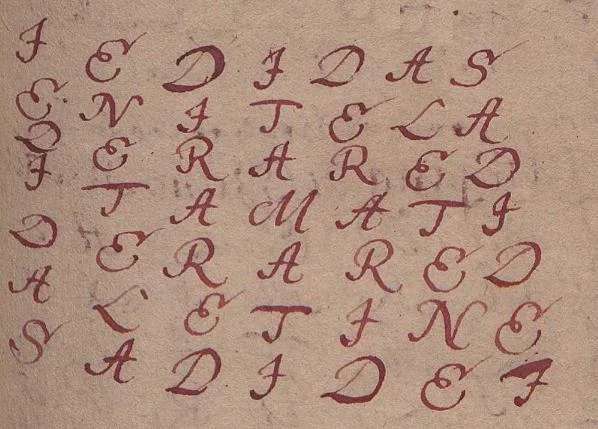 I E D I D A S
E N I T E L A
D E R A R E D
I T A M A T I
D E R A R E D
A L E T I N E
S A D I D E I